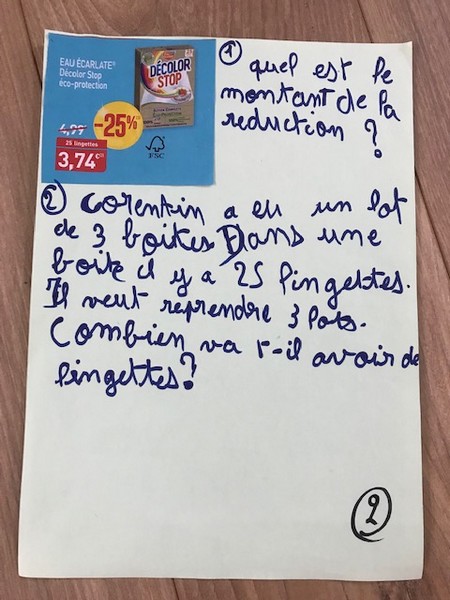 EAU ÉCARLATE®
Décolor Stop
éco-protection
DÉCOLOR
STOP
4,99
-25%
25 lingettes
3,74€
FSC
① quel est le
montant de la
reduction ?
② Corentin a eu un lot
de 3 boites Dans une
boite il y a 25 lingettes.
Il veut reprendre 3 lots.
Combien va t-il avoir de
lingettes?
2